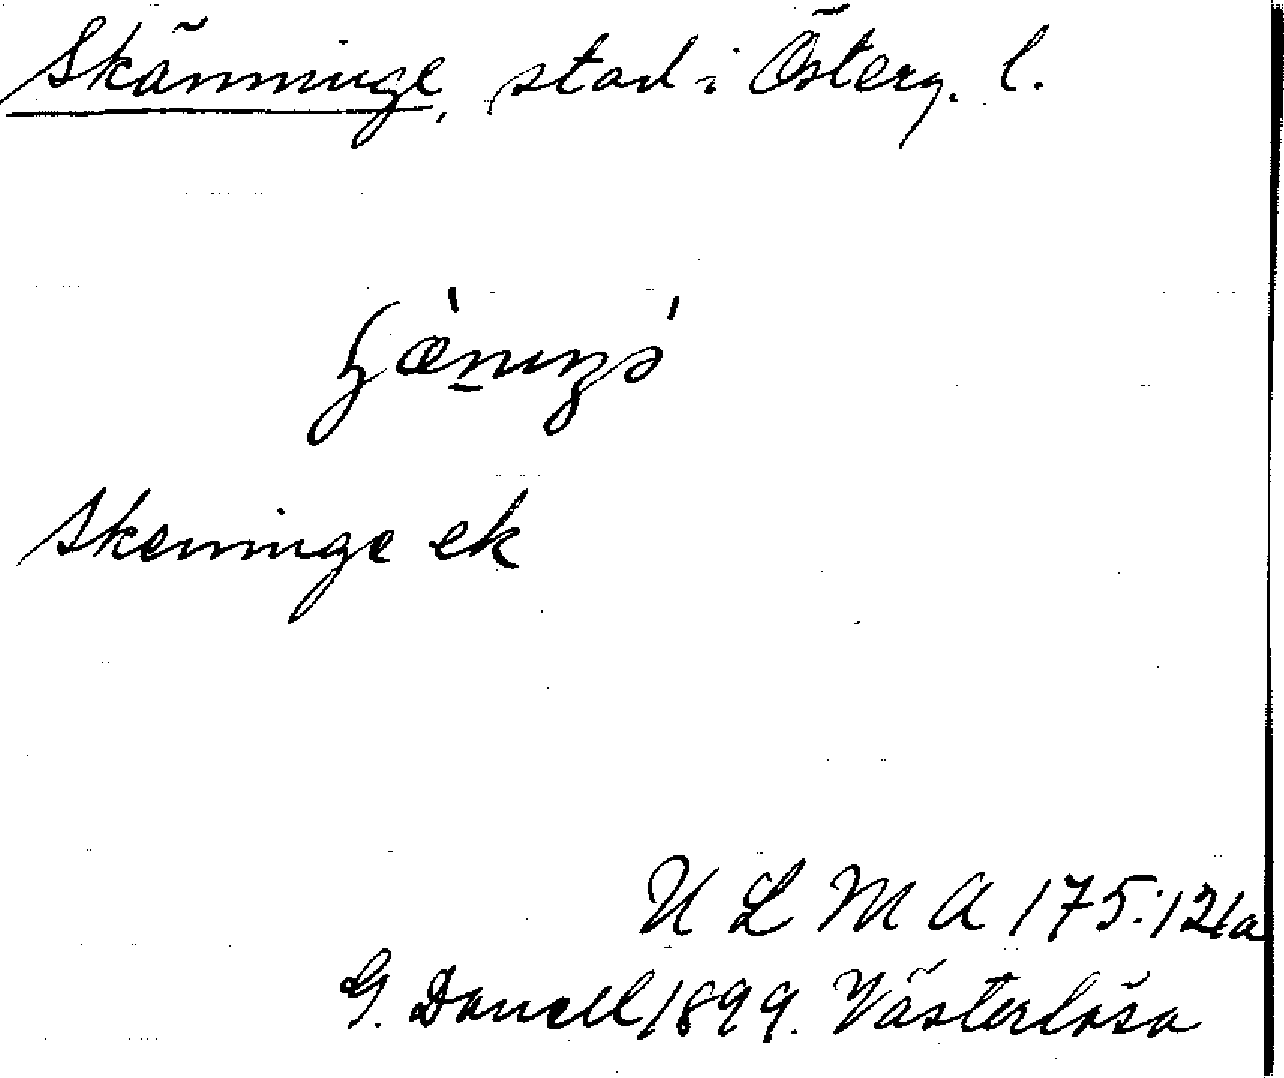 Skänninge, stad i Österg. l.
Skeninge ek
U L M A 175:121a
G. Danell 1899. Västerlösa